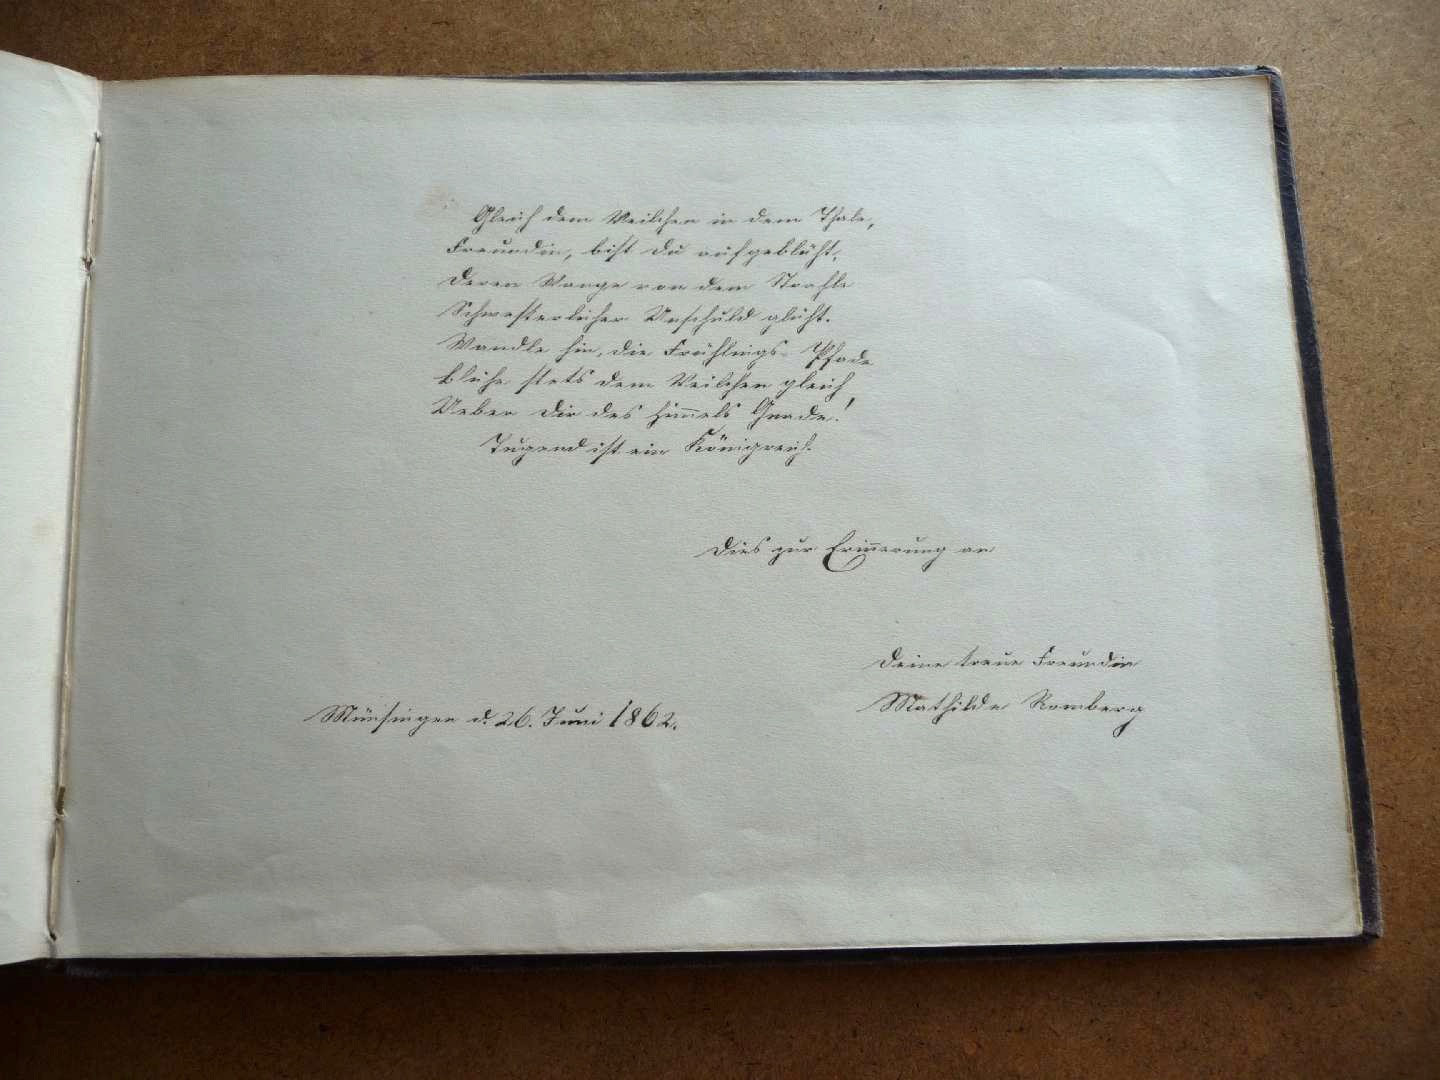 Gleich dem Veilchen in dem Thale,
Freundin, bist Du aufgeblüht,
Deren Wange von dem Strahle
Schwesterlicher Unschuld glüht.
Wandle hin, die Frühlings-Pfade
blühe stets dem Veilchen gleich
Ueber Dir des Himmels Gnade!
Tugend ist ein Königreich.
Dies zur Erinnerung an
Deine treue Freundin
Mathilde Romberg
Münsingen d. 26. Juni 1862.